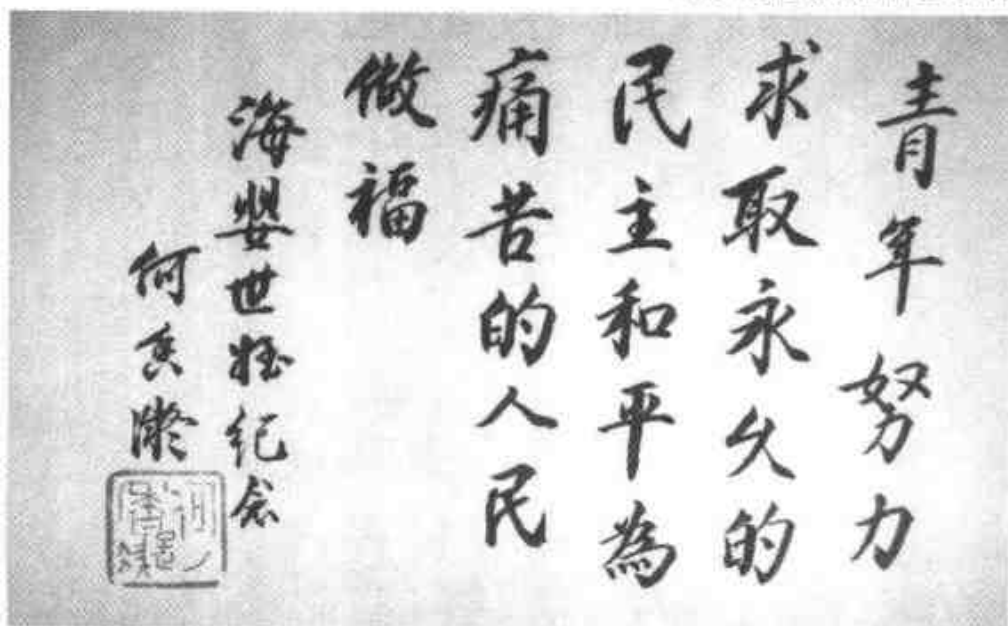 青年努力
求取永久的
民主和平為
痛苦的人民
做福
海嬰世姪紀念
何香凝